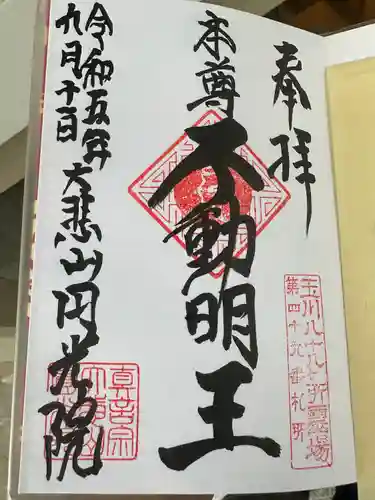 奉拝
玉川八十八ヶ所霊場
第四十九番札所
本尊
不動明王
令和五年
九月十日
大悲山円光院
真言宗